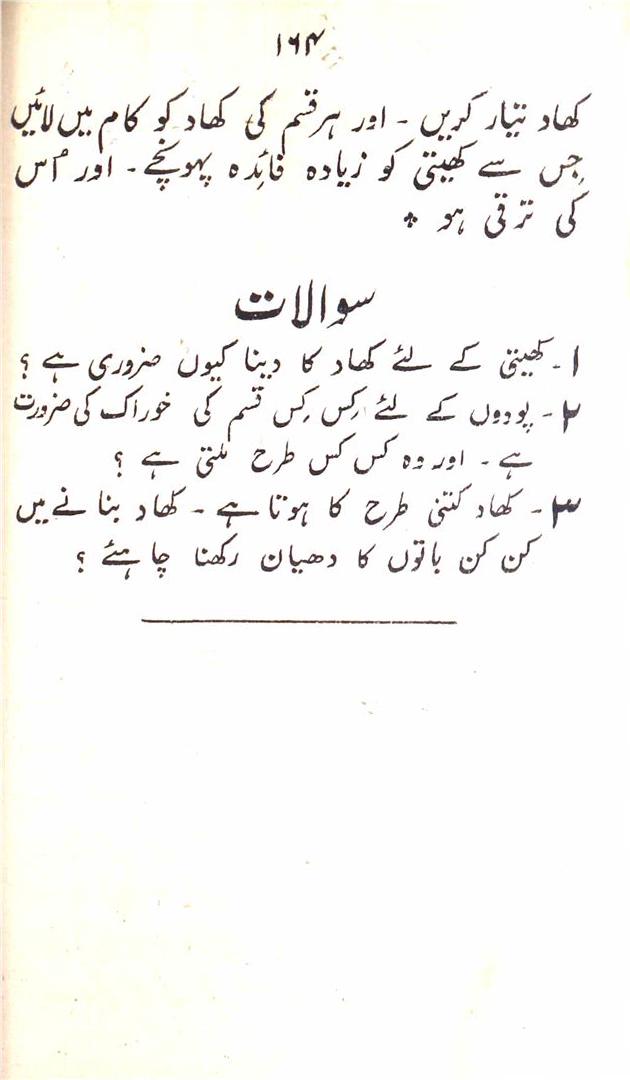 ۱۶۴
کھاد تیار کریں - اور ہر قسم کی کھاد کو کام میں لائیں
جِس سے کھیتی کو زیادہ فائِدہ پہونچے - اور اُس
کی ترقی ہو *
سوالات
۱- کھیتی کے لئے کھاد کا دینا کیوں ضروری ہے ؟
۲- پودوں کے لئے کِس کِس قسم کی خوراک کی ضرورت
ہے - اور وہ کس کس طرح ملتی ہے ؟
۳- کھاد کتنی طرح کا ہوتا ہے - کھاد بنانے میں
کن کن باتوں کا دھیان رکھنا چاہئے ؟